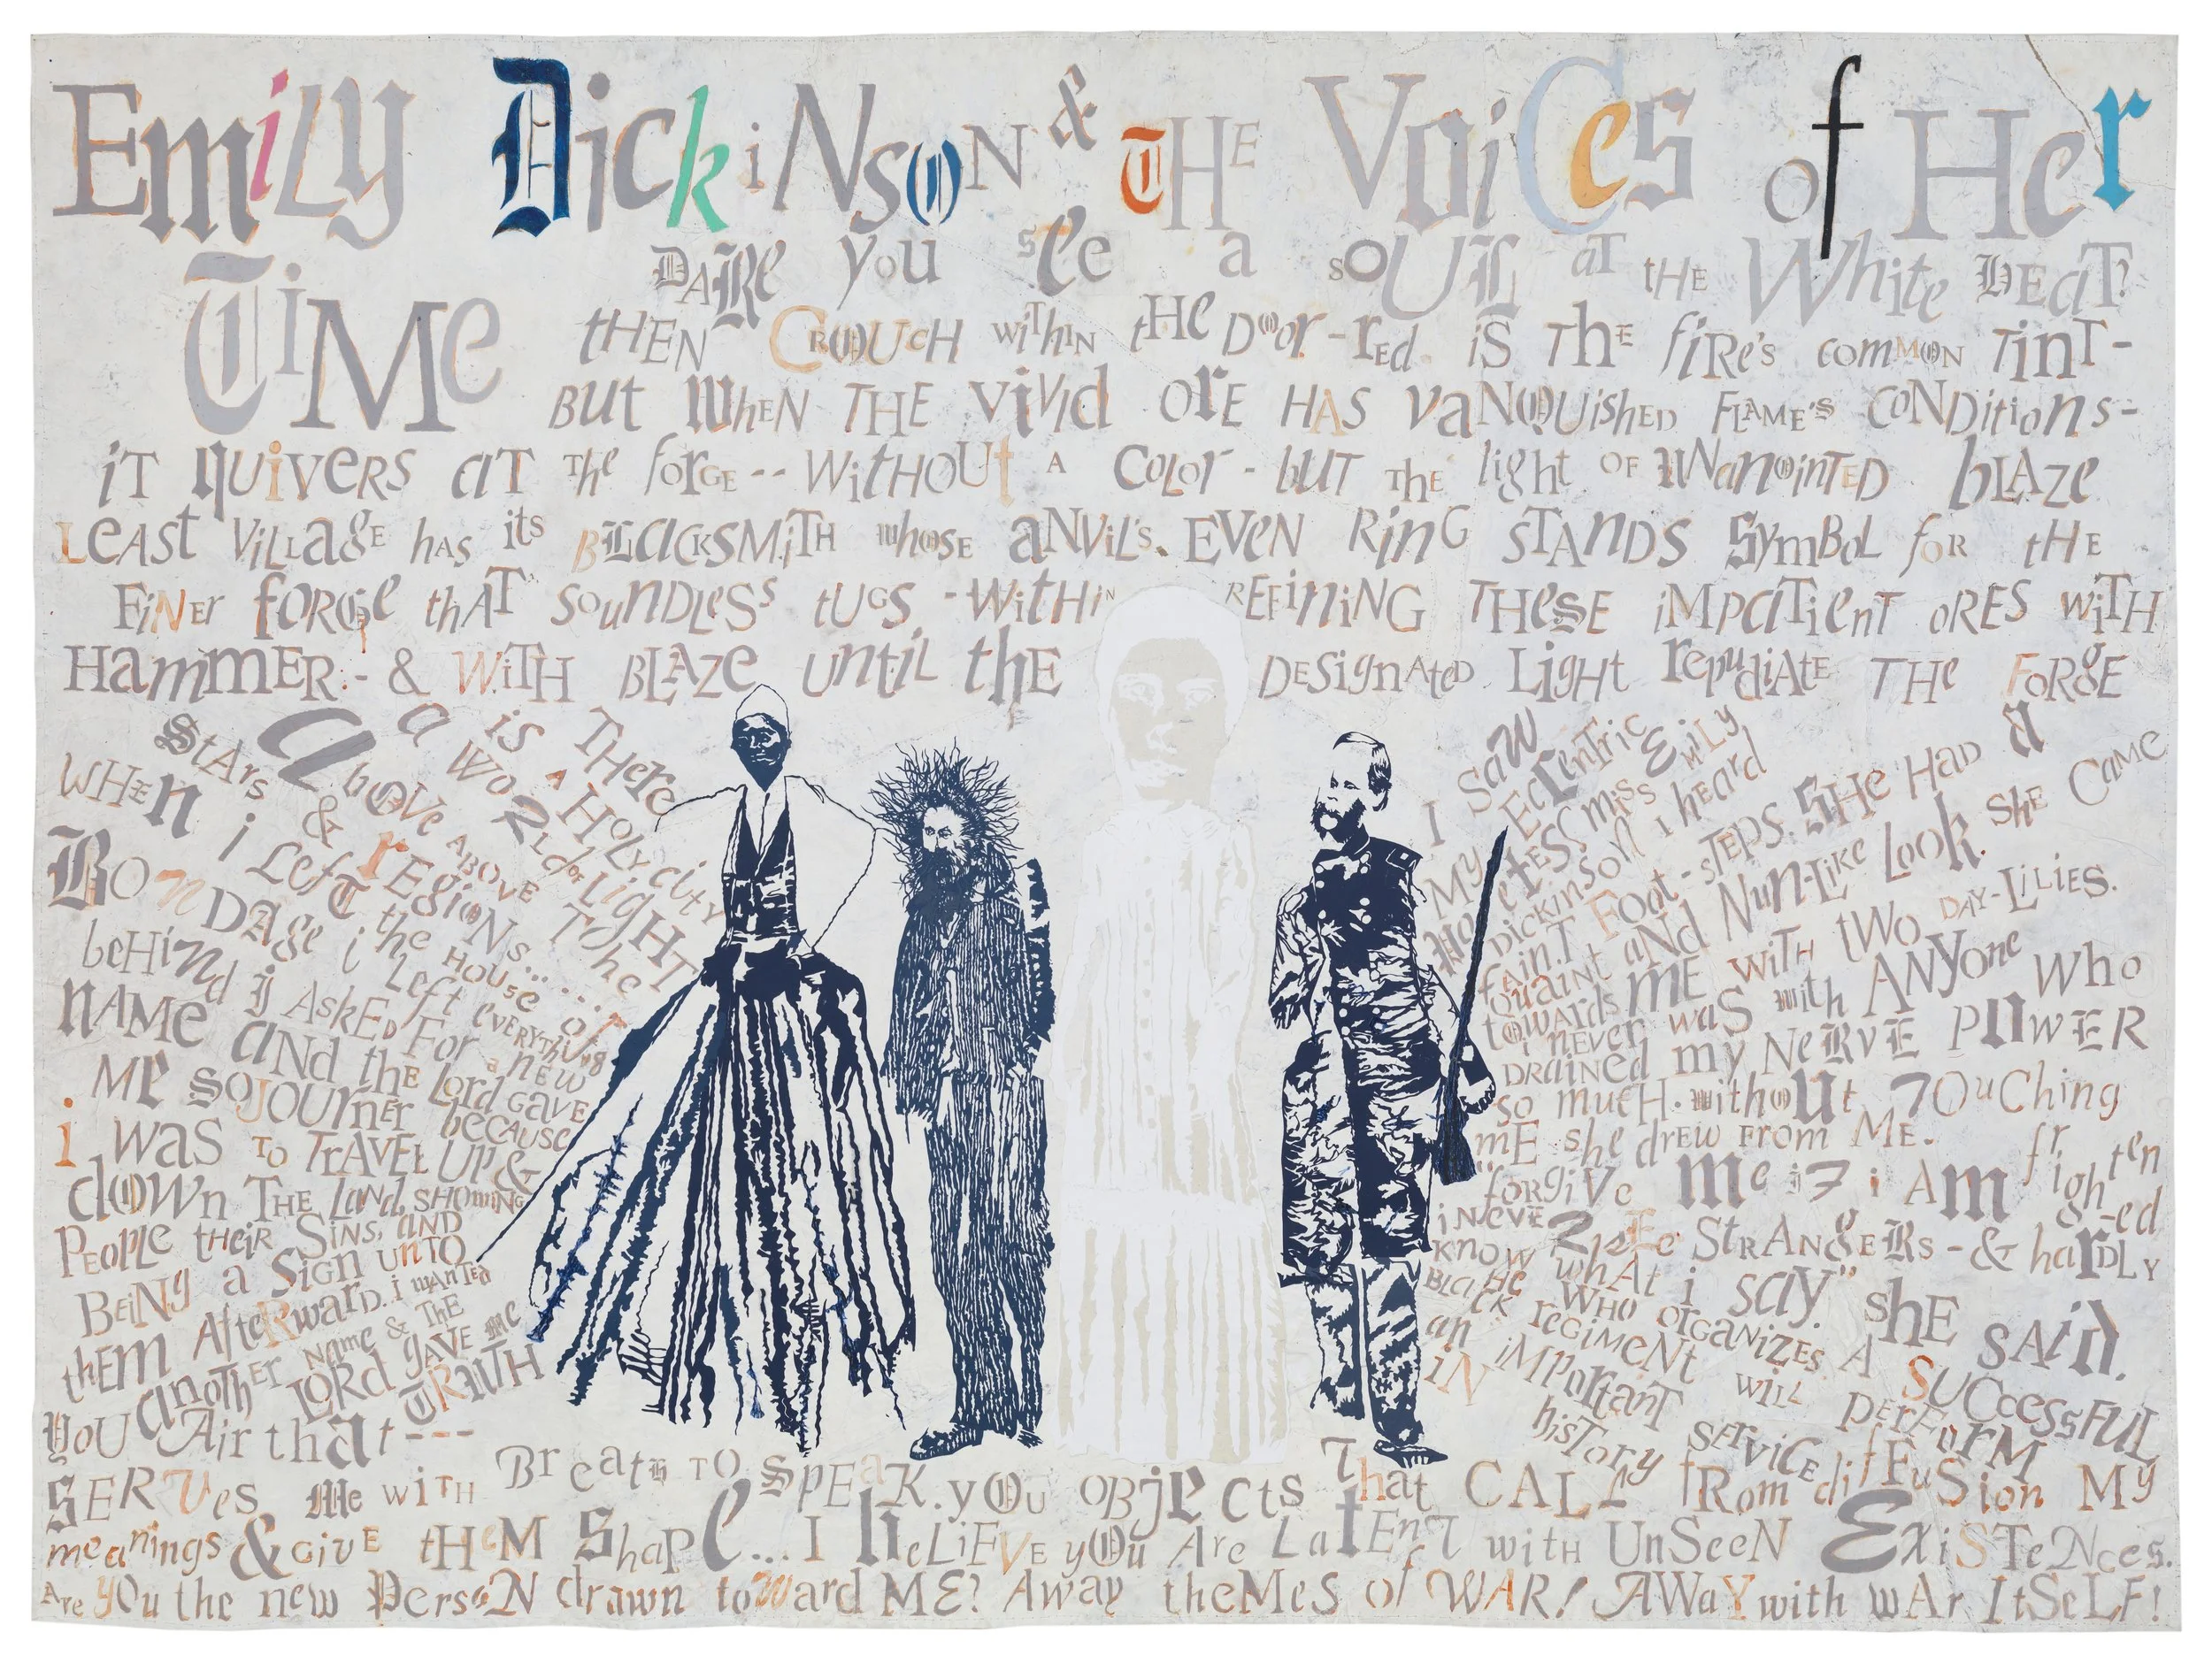 Emily Dickinson & the Voices of Her
Time
Dare you see a soul at the White Heat?
then Crouch within the Door-red is the fire's common Tint-
but when the vivid ore has vanquished flame's conditions-
it quivers at the forge--without a color-but the light of unanointed blaze
Least village has its blacksmith whose anvil's even ring stands symbol for the
finer forge that soundless tugs-within refining these impatient ores with
Hammer-& with blaze until the designated light repudiate the forge
There is a Holy city
a world of Light
above above the
stars & regions......
When i left the House of
Bondage i left everything
behind i asked for a new
name and the Lord gave
me Sojourner because
i was to travel up &
down the land, showing
people their sins, and
Being a sign unto
them afterward. i wanted
another name & the
Lord gave me
TRUTH
I saw
My Eccentric
Poetess Miss Emily
Dickinson i heard
faint foot-steps. She had a
quaint and nun-like look. she came
towards me with two day-lilies.
i never was with anyone who
drained my nerve power
so much. without touching
me she drew from me.
"forgive me if i am frighten-ed
i never see strangers-& hardly
know what i say" she said.
He who organizes a successful
Black regiment will perform
an important service
in history
You Air that---
serves me with Breath to speak. you objects that call from diffusion my
meanings & give them shape...I believe you are latent with unseen Existences.
Are you the new Person drawn toward ME? Away themes of WAR! Away with war itself!